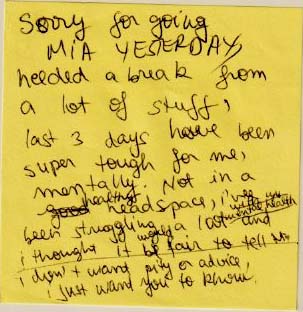 Sorry for going
MIA YESTERDAY,
needed a break from
a lot of stuff,
last 3 days have been
super tough for me,
mentally. Not in a
good healthy headspace, i've
been struggling a lot mental health and
i thought it would be fair to tell
i don't want pity or advice,
i just want you to know.